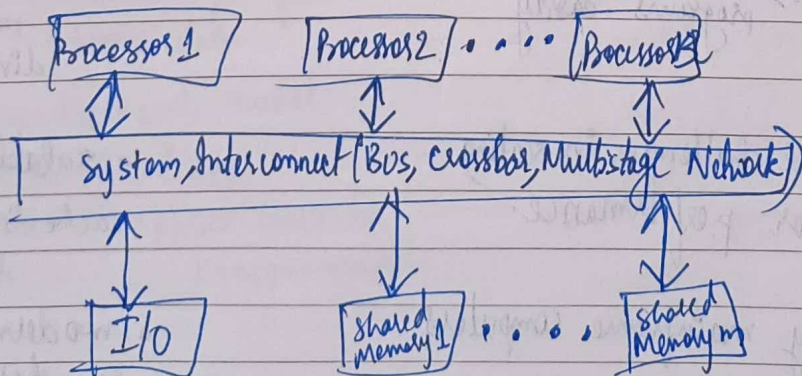 Processor 1 Processor 2 . . . . Processor
System, Interconnect (Bus, Crossbar, Multistage Network)
I/O Shared Memory 1 . . . . Shared Memory m